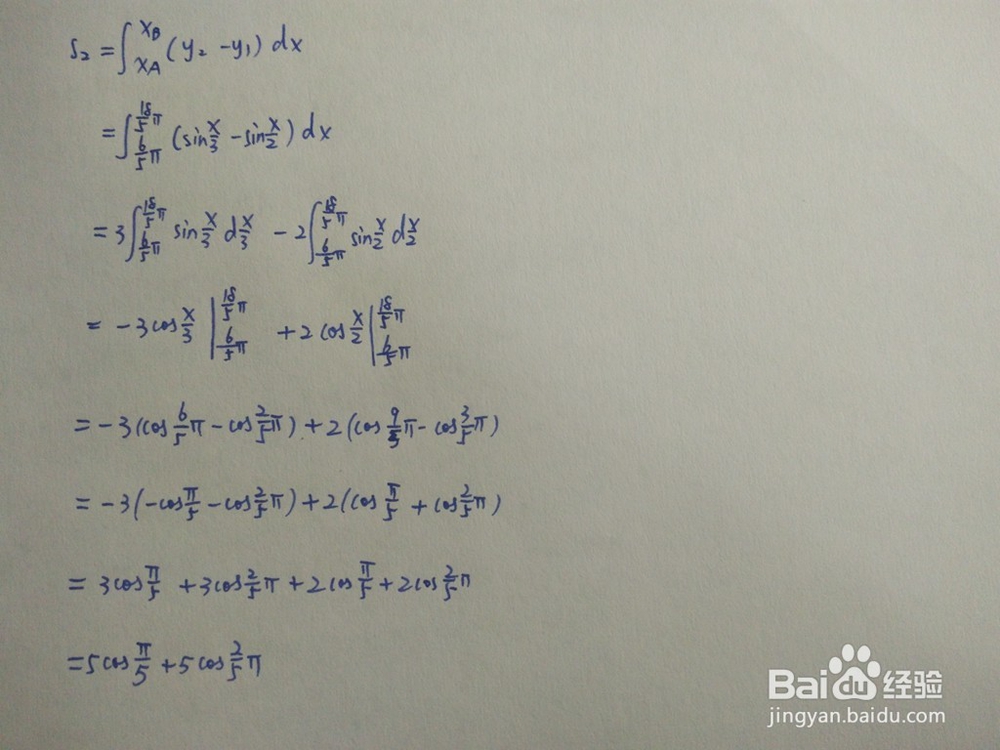 S₂ = ∫_{x_A}^{x_B} (y₂ - y₁) dx
= ∫_{6/5 π}^{18/5 π} (sin x/3 - sin x/2) dx
= 3 ∫_{6/5 π}^{18/5 π} sin x/3 d x/3 - 2 ∫_{6/5 π}^{18/5 π} sin x/2 d x/2
= -3 cos x/3 |_{6/5 π}^{18/5 π} + 2 cos x/2 |_{6/5 π}^{18/5 π}
= -3 (cos 6/5 π - cos 2/5 π) + 2 (cos 9/5 π - cos 3/5 π)
= -3 (-cos π/5 - cos 2/5 π) + 2 (cos π/5 + cos 2/5 π)
= 3 cos π/5 + 3 cos 2/5 π + 2 cos π/5 + 2 cos 2/5 π
= 5 cos π/5 + 5 cos 2/5 π
Baidu 经验
jingyan.baidu.com